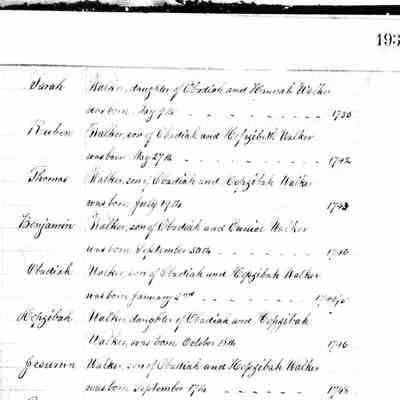 193
Sarah Walker, daughter of Obadiah and Hannah Walker
was born May 9th - - - - - - - 1730
Ruben Walker, son of Obadiah and Hepzibeth Walker
was born May 27th - - - - - - - 1742
Thomas Walker, son of Obadiah and Hepzibah Walker
was born July 19th 1743
Benjamin Walker, son of Obadiah and Eunice Walker
was born September 30th - - - - - 1746
Obadiah Walker, son of Obadiah and Hepzibah Walker
was born January 2nd - - - - - -
Hepzibah Walker daughter of Obadiah and Hepzibah
Walker, was born October 18th 1746
Walker, son of Obadiah and Hepzibah Walker
was born September 17th - - - - - - 1748